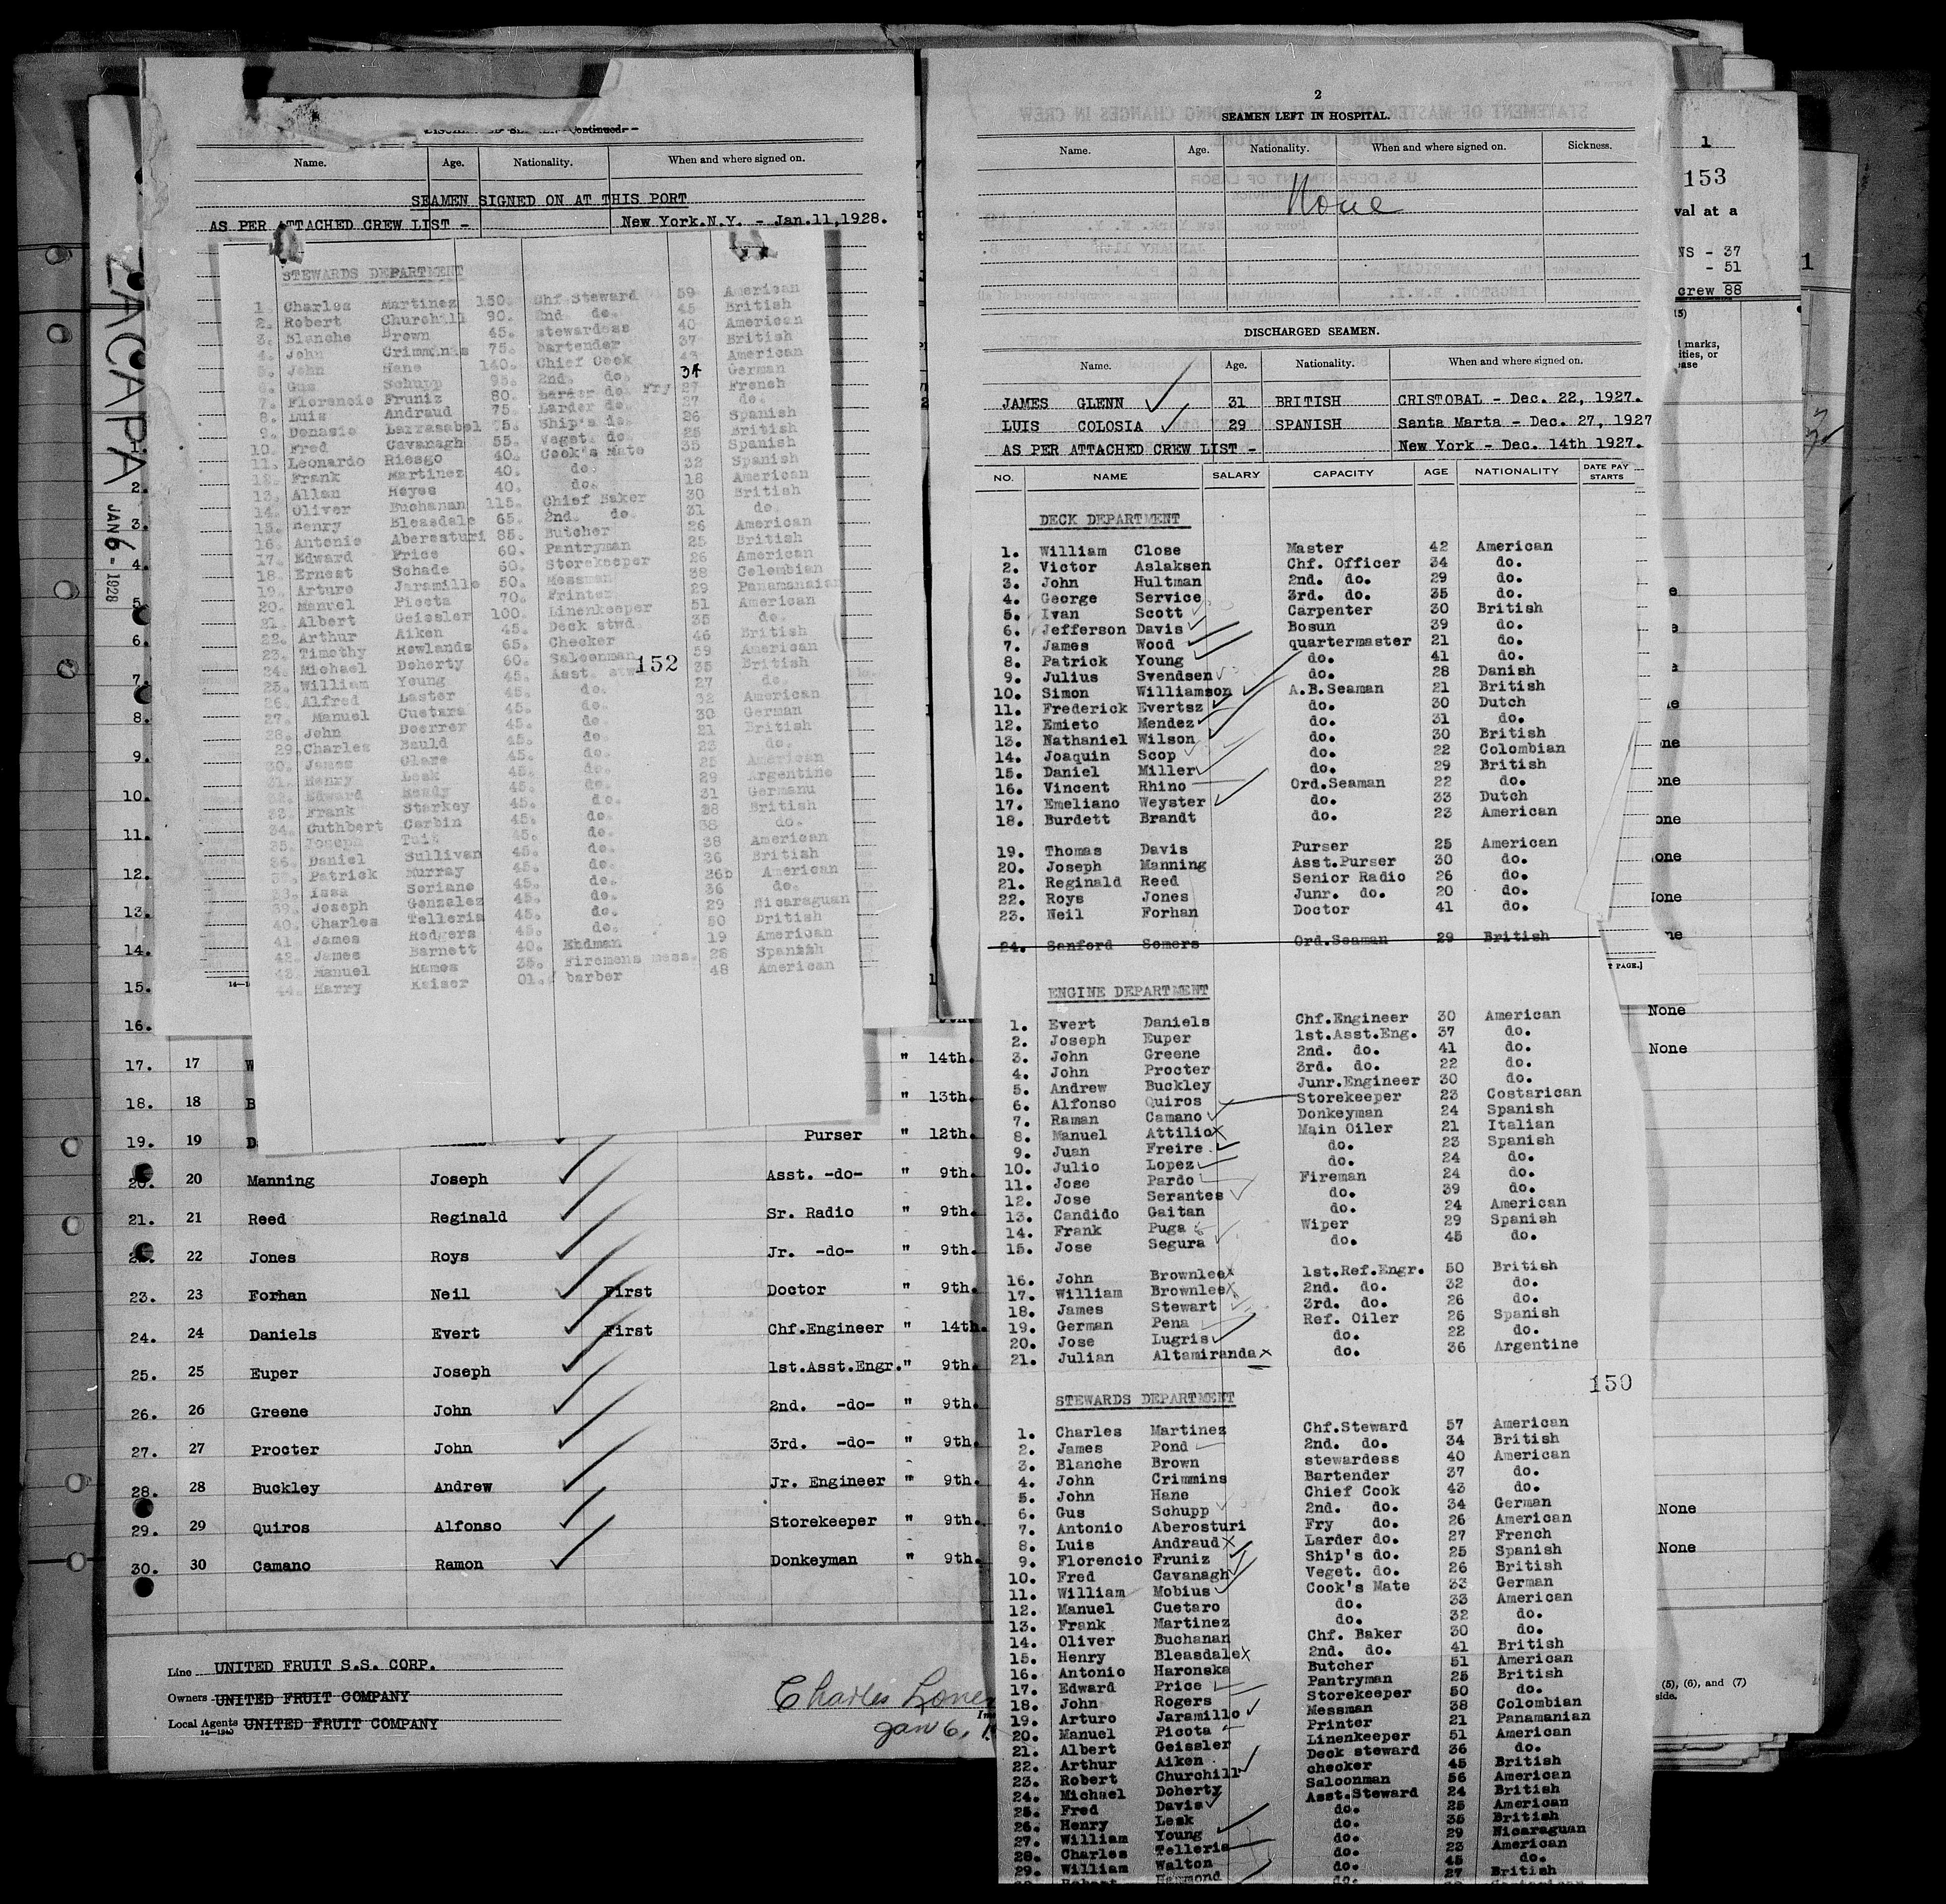 ZACAPA
JAN 6 - 1928
Name. Age. Nationality. When and where signed on.
SEAMEN SIGNED ON AT THIS PORT
AS PER ATTACHED CREW LIST - New York.N.Y. - Jan.11,1928.
STEWARDS DEPARTMENT
1. Charles Martinez 150. Chf Steward 59 American
2. Robert Churchill 90. 2nd do. 45 British
3. Blanche Brown 45. stewardess 40 American
4. John Crimmins 75. bartender 37 British
5. John Hane 140. Chief Cook 43 American
6. Gus Schupp 95. 2nd. do. 34 German
7. Florencio Fruniz 80. Larder do. Fry 27 French
8. Luis Andraud 75. Larder do. 27 do.
9. Larrasabel 75. Ship's do. 26 Spanish
10. Fred Cavanagh 55. Veget. do. 25 British
11. Leonardo Riesgo 40. Cook's Mate 35 Spanish
12. Frank Martinez 40. do. 32 Spanish
13. Allan Heyes 40. do. 18 American
14. Oliver Buchanan 115. Chief Baker 30 British
15. Henry Bleasdale 65. 2nd. do. 31 do.
16. Antonio Aberosturi 85. Butcher 26 American
17. Edward Price 60. Pantryman 25 British
18. Ernest Schade 60. Storekeeper 26 American
19. Arturo Jaramillo 50. Messman 38 Colombian
20. Manuel Picota 70. Printer 29 Panamanaian
21. Albert Geissler 100. Linenkeeper 51 American
22. Arthur Aiken 45. Deck stwd. 35 do.
23. Timothy Rowlands 65. Checker 46 British
24. Michael Doherty 60. Saloonman 59 American
25. William Young 45. Asst. 35 British
152
26. Alfred Laster 45. do. 27 do.
27. Manuel Cuetara 45. do. 32 American
28. John Doerrer 45. do. 30 German
29. Charles Bauld 45. do. 21 British
30. James Clare 45. do. 23 do.
31. Henry Leak 45. do. 25 American
32. Edward Ready 45. do. 29 Argentine
33. Frank Starkey 45. do. 31 Germanu
34. Cuthbert Corbin 45. do. 28 British
35. Joseph Tait 45. do. 38 do.
36. Daniel Sullivan 45. do. 38 American
37. Patrick Murray 45. do. 36 British
38. Issa Soriano 45. do. 26b American
39. Joseph Gonzalez 45. do. 36 do.
40. Charles Telleria 45. do. 29 Nicaraguan
41. James Rodgers 45. do. 50 British
42. James Barnett 40. Endman 19 American
43. Manuel Rames 35. Firemens mess. 28 Spanish
44. Harry Kaiser 01. barber 48 American
2.
3.
4.
5.
6.
7.
8.
9.
10.
11.
12.
13.
14.
15.
16.
17. 17 W " 14th.
18. 18 B " 13th.
19. 19 D Purser " 12th.
20. 20 Manning Joseph Asst. -do- " 9th.
21. 21 Reed Reginald Sr. Radio " 9th.
22. 22 Jones Roys Jr. -do- " 9th.
23. 23 Forhan Neil First Doctor " 9th.
24. 24 Daniels Evert First Chf.Engineer " 14th.
25. 25 Euper Joseph 1st.Asst.Engr. " 9th.
26. 26 Greene John 2nd. -do- " 9th.
27. 27 Procter John 3rd. -do- " 9th.
28. 28 Buckley Andrew Jr. Engineer " 9th.
29. 29 Quiros Alfonso Storekeeper " 9th.
30. 30 Camano Ramon Donkeyman " 9th.
Line UNITED FRUIT S.S. CORP.
Owners UNITED FRUIT COMPANY
Local Agents UNITED FRUIT COMPANY
14-1240
Charles
Jan 6, 1
2
SEAMEN LEFT IN HOSPITAL.
Name. Age. Nationality. When and where signed on. Sickness.
None
DISCHARGED SEAMEN.
Name. Age. Nationality. When and where signed on.
JAMES GLENN 31 BRITISH CRISTOBAL - Dec. 22, 1927.
LUIS COLOSIA 29 SPANISH Santa Marta - Dec. 27, 1927
AS PER ATTACHED CREW LIST - New York - Dec. 14th 1927.
NO. NAME SALARY CAPACITY AGE NATIONALITY DATE PAY STARTS
DECK DEPARTMENT
1. William Close Master 42 American
2. Victor Aslaksen Chf. Officer 34 do.
3. John Hultman 2nd. do. 29 do.
4. George Service 3rd. do. 35 do.
5. Ivan Scott Carpenter 30 British
6. Jefferson Davis Bosun 39 do.
7. James Wood quartermaster 21 do.
8. Patrick Young do. 41 do.
9. Julius Svendsen do. 28 Danish
10. Simon Williamson A.B.Seaman 21 British
11. Frederick Evertsz do. 30 Dutch
12. Emieto Mendez do. 31 do.
13. Nathaniel Wilson do. 30 British
14. Joaquin Scop do. 22 Colombian
15. Daniel Miller do. 29 British
16. Vincent Rhino Ord.Seaman 22 do.
17. Emeliano Weyster do. 33 Dutch
18. Burdett Brandt do. 23 American
19. Thomas Davis Purser 25 American
20. Joseph Manning Asst.Purser 30 do.
21. Reginald Reed Senior Radio 26 do.
22. Roys Jones Junr. do. 20 do.
23. Neil Forhan Doctor 41 do.
24. Sanford Somers Ord.Seaman 29 British
ENGINE DEPARTMENT
1. Evert Daniels Chf.Engineer 30 American
2. Joseph Euper 1st.Asst.Eng. 37 do.
3. John Greene 2nd. do. 41 do.
4. John Procter 3rd. do. 22 do.
5. Andrew Buckley Junr.Engineer 30 do.
6. Alfonso Quiros Storekeeper 23 Costarican
7. Raman Camano Donkeyman 24 Spanish
8. Manuel Attilio Main Oiler 21 Italian
9. Juan Freire do. 23 Spanish
10. Julio Lopez do. 24 do.
11. Jose Pardo Fireman 24 do.
12. Jose Serantes do. 39 do.
13. Candido Gaitan do. 24 American
14. Frank Puga Wiper 29 Spanish
15. Jose Segura do. 45 do.
16. John Brownlee 1st.Ref.Engr. 50 British
17. William Brownlee 2nd. do. 32 do.
18. James Stewart 3rd. do. 26 do.
19. German Pena Ref. Oiler 26 Spanish
20. Jose Lugris do. 22 do.
21. Julian Altamiranda do. 36 Argentine
150
STEWARDS DEPARTMENT
1. Charles Martinez Chf.Steward 57 American
2. James Pond 2nd. do. 34 British
3. Blanche Brown stewardess 40 American
4. John Crimmins Bartender 37 do.
5. John Hane Chief Cook 43 do.
6. Gus Schupp 2nd. do. 34 German
7. Antonio Aberosturi Fry do. 26 American
8. Luis Andraud Larder do. 27 French
9. Florencio Fruniz Ship's do. 25 Spanish
10. Fred Cavanagh Veget. do. 26 British
11. William Mobius Cook's Mate 33 German
12. Manuel Cuetaro do. 33 American
13. Frank Martinez do. 32 do.
14. Oliver Buchanan Chf. Baker 30 do.
15. Henry Bleasdale 2nd. do. 41 British
16. Antonio Haronska Butcher 51 American
17. Edward Price Pantryman 25 British
18. John Rogers Storekeeper 50 do.
19. Arturo Jaramillo Messman 38 Colombian
20. Manuel Picota Printer 21 Panamanian
21. Albert Geissler Linenkeeper 51 American
22. Arthur Aiken Deck steward 36 do.
23. Robert Churchill checker 45 British
24. Michael Doherty Saloonman 56 American
25. Fred Davis Asst.Steward 24 British
26. Henry Leak do. 25 American
27. William Young do. 35 British
28. Charles Telleria do. 29 Nicaraguan
29. William Walton do. 23 American
1
153
val at a
NS - 37
- 51
crew 88
(5)
marks,
ities, or
ease
None
None
None
None
(5), (6), and (7)
side.